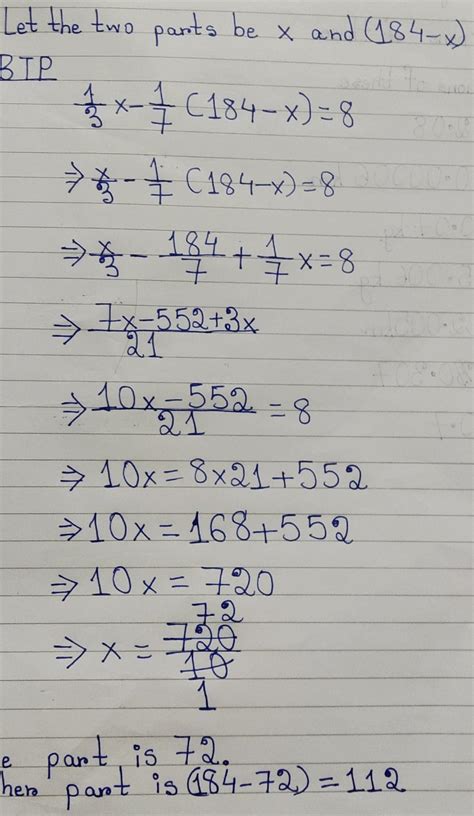 Let the two parts be x and (184-x)
BTP
1/3 x - 1/7 (184-x) = 8
⇒ x/3 - 1/7 (184-x) = 8
⇒ x/3 - 184/7 + 1/7 x = 8
⇒ 7x-552+3x/21
⇒ 10x-552/21 = 8
⇒ 10x = 8x21+552
⇒ 10x = 168+552
⇒ 10x = 720
72
⇒ x = 720/10
1
e part is 72.
her part is (184-72) = 112